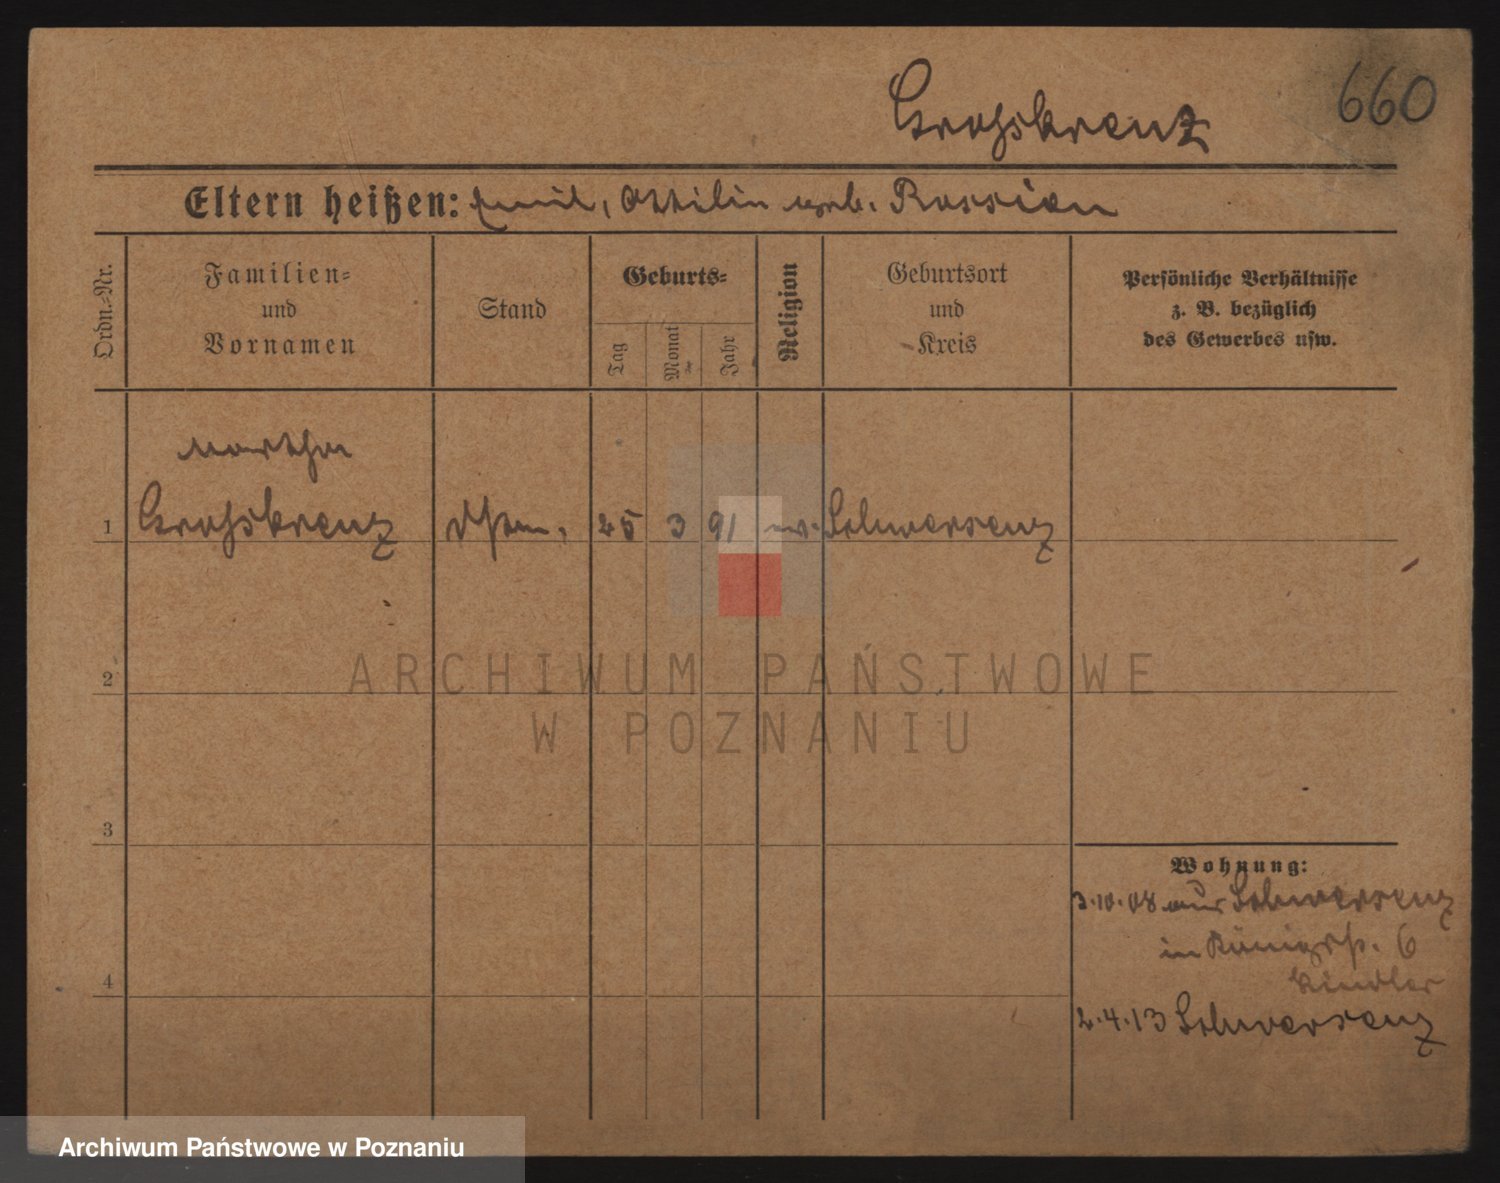 660
Grosskreuz
Eltern heißen: Emil, Ottilie geb. Rossian
Ordn.=Nr.
Familien=
und
Vornamen
Stand
Geburts=
Tag
Monat
Jahr
Religion
Geburtsort
und
Kreis
Persönliche Verhältnisse
z. B. bezüglich
des Gewerbes usw.
Martha
1 Grosskreuz 25 3 91 Schwersenz
ARCHIWUM PAŃSTWOWE
2
W POZNANIU
3
Wohnung:
3.10.08 aus Schwersenz
in Königstr. 6
4
Kindler
2.4.13 Schwersenz
Archiwum Państwowe w Poznaniu